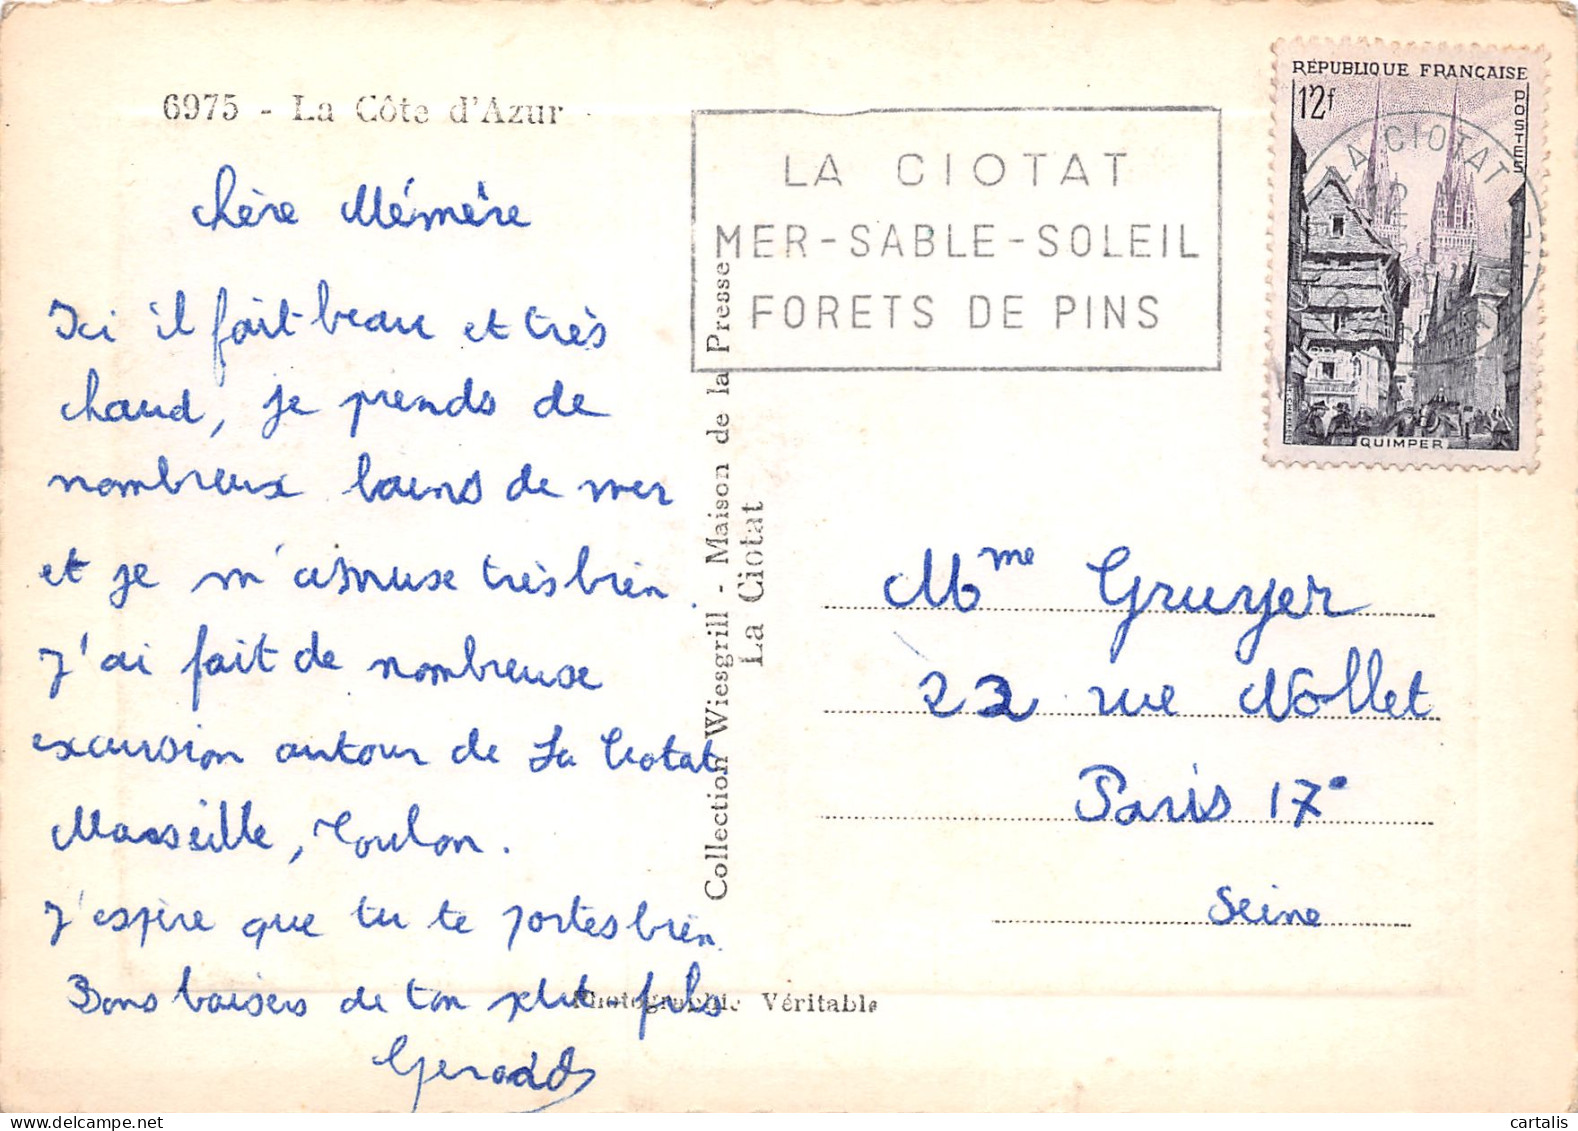 6975 - La Côte d'Azur
Chère Mémère
Ici il fait beau et très
chaud, je prends de
nombreux bains de mer
et je m'amuse très bien.
J'ai fait de nombreuse
excursion autour de La Ciotat
Marseille, Toulon.
J'espère que tu te portes bien
Bons baisers de ton petit-fils
Gérard
Collection Wiesgrill - Maison de la Presse
La Ciotat
Photographie Véritable
LA CIOTAT
MER-SABLE-SOLEIL
FORETS DE PINS
RÉPUBLIQUE FRANÇAISE
12f
POSTES
LA CIOTAT
QUIMPER
Mme Gruyer
22 rue Nollet
Paris 17e
Seine
cartalis